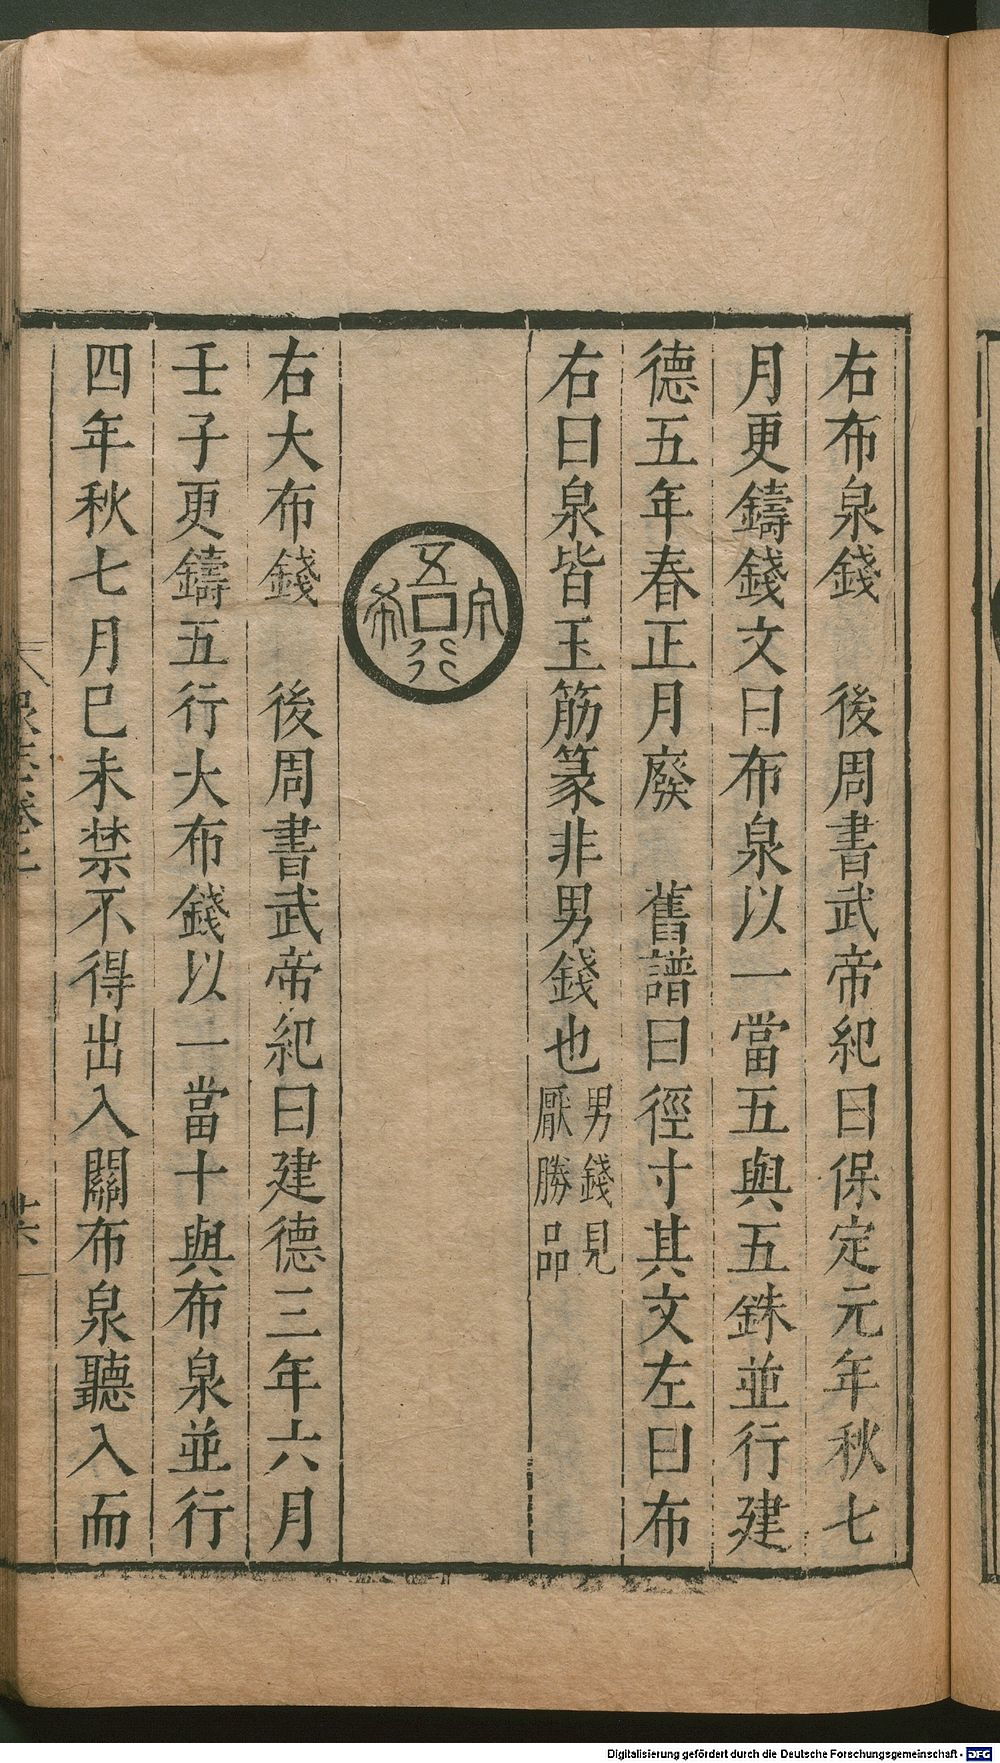 右布泉錢　後周書武帝紀曰保定元年秋七
月更鑄錢文曰布泉以一當五與五銖並行建
德五年春正月廢　舊譜曰徑寸其文左曰布
右曰泉皆玉筋篆非男錢也男錢見
厭勝品
五行
右大布錢　後周書武帝紀曰建德三年六月
壬子更鑄五行大布錢以一當十與布泉並行
四年秋七月巳未禁不得出入關布泉聽入而
Digitalisierung gefördert durch die Deutsche Forschungsgemeinschaft - DFG